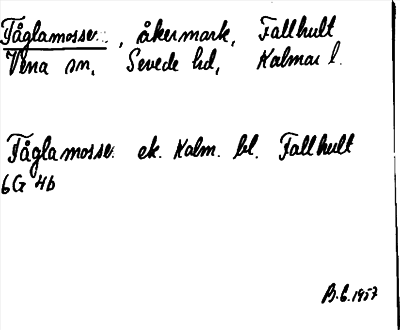 Tåglamosse, åkermark, Fallhult
Vena sn, Sevede hd, Kalmar l.
Tåglamosse ek. Kalm. bl. Fallhult
6G 4b
B.G. 1957